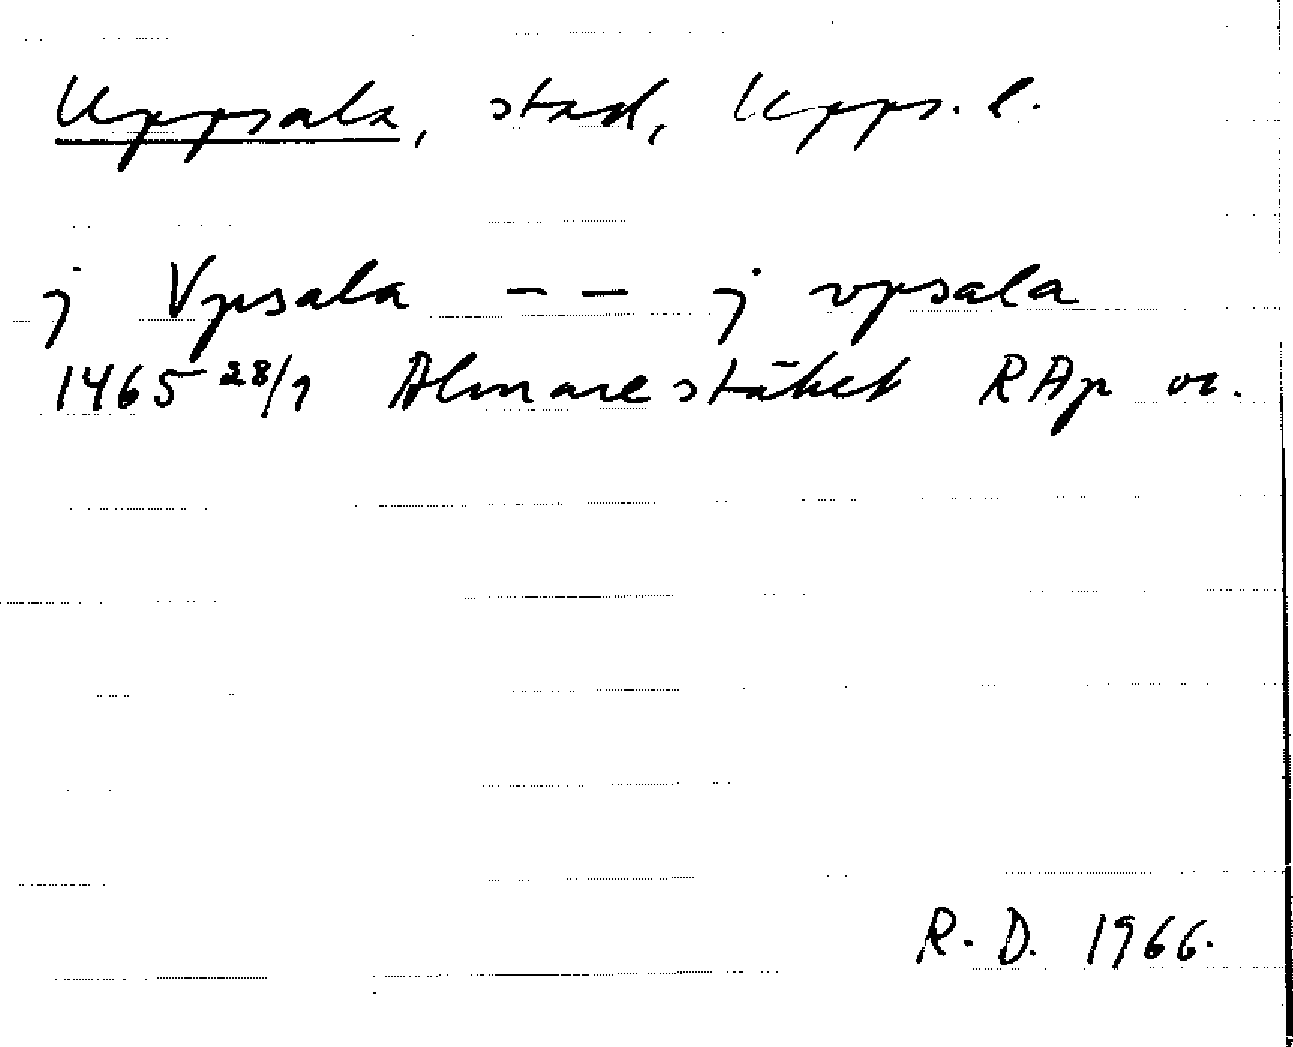 Uppsala, stad, Upps. l.
j Vpsala - - j vpsala
1465 28/1 Almarestäket RAp or.
R. D. 1966.